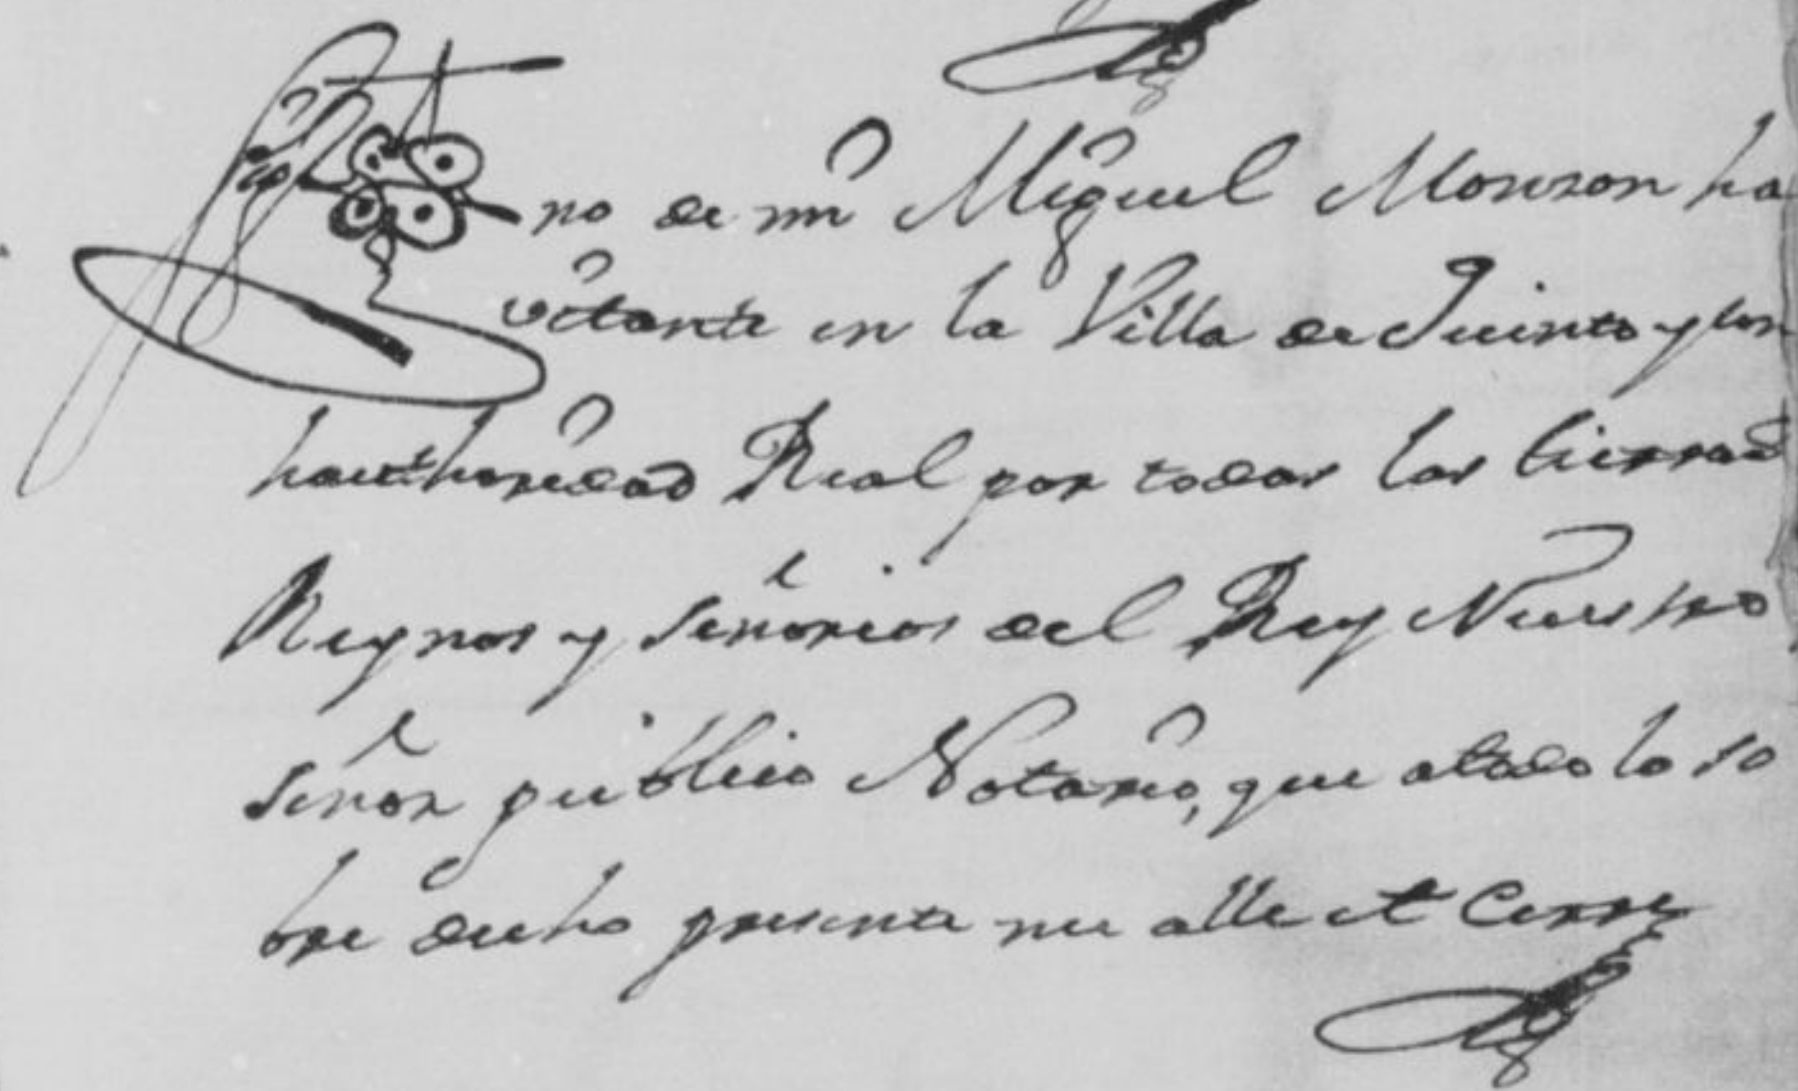 no de mi Miguel Monzon ha
vitante en la Villa de Quinto y con
hauthoridad Real por todas las tierras
Reynos y señorios del Rey Nuestro
señor publico Notario, que a todo lo so
bre dicho presente me alle et Cerre